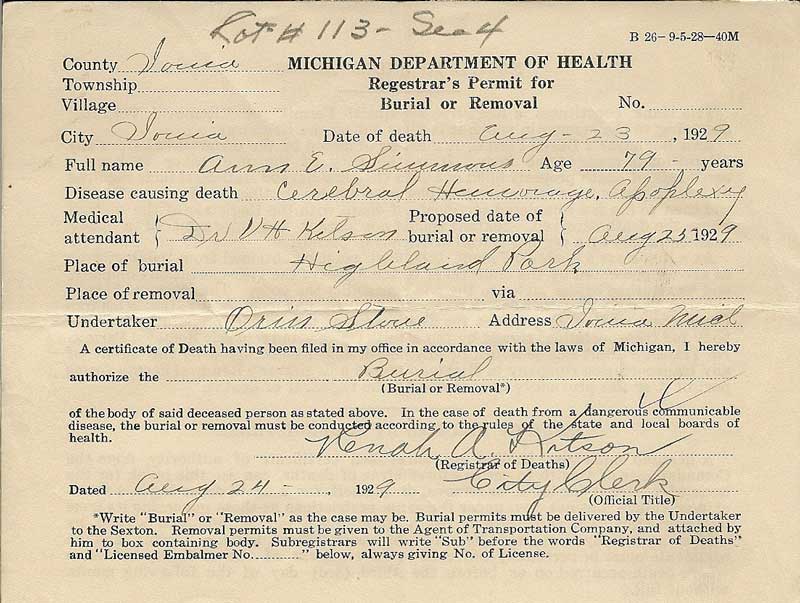 Lot # 113 - Sec 4
B 26-9-5-28-40M
County Ionia MICHIGAN DEPARTMENT OF HEALTH
Township Regestrar's Permit for
Village Burial or Removal No.
City Ionia Date of death Aug - 23, 1929
Full name Ann E. Simmons Age 79 - years
Disease causing death Cerebral Hemorage, Apoplexy
Medical attendant { Dr V H Kitson Proposed date of burial or removal { Aug 25 1929
Place of burial Highland Park
Place of removal via
Undertaker Orin Stone Address Ionia Mich
A certificate of Death having been filed in my office in accordance with the laws of Michigan, I hereby
authorize the Burial
(Burial or Removal*)
of the body of said deceased person as stated above. In the case of death from a dangerous communicable
disease, the burial or removal must be conducted according to the rules of the state and local boards of
health.
A. Kitson
(Registrar of Deaths)
Dated Aug 24 -, 1929 City Clerk
(Official Title)
*Write "Burial" or "Removal" as the case may be. Burial permits must be delivered by the Undertaker
to the Sexton. Removal permits must be given to the Agent of Transportation Company, and attached by
him to box containing body. Subregistrars will write "Sub" before the words "Registrar of Deaths"
and "Licensed Embalmer No.........." below, always giving No. of License.